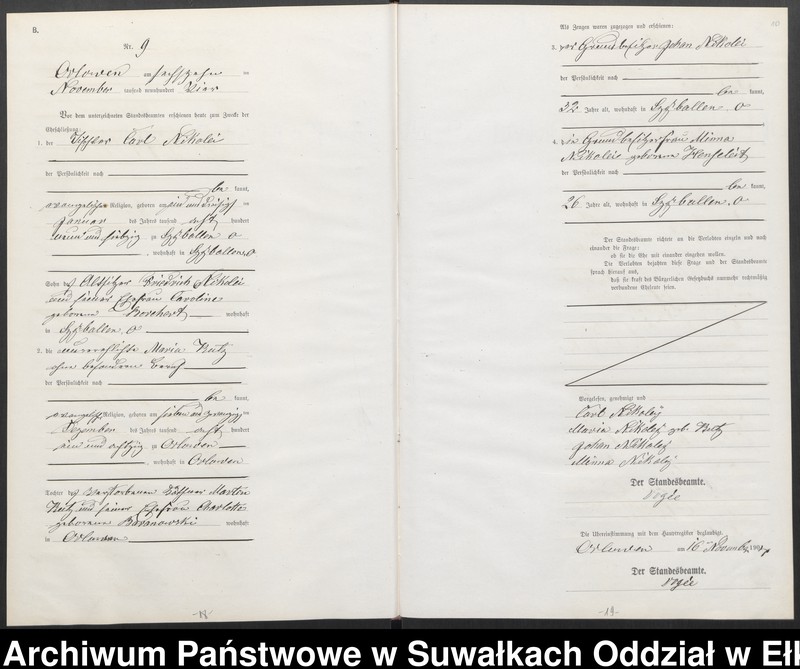 B.
Nr. 9
Orlowen am sechszehn ten
November tausend neunhundert Vier
Vor dem unterzeichneten Standesbeamten erschienen heute zum Zwecke der
Eheschließung:
1. der Tischler Carl Nikolei
der Persönlichkeit nach
be kannt,
evangelischer Religion, geboren am ein und dreißig ten
Januar des Jahres tausend acht hundert
neun und siebzig zu Szyballen O
, wohnhaft in Szyballen O
Sohn des Altsitzer Friedrich Nikolei
und seiner Ehefrau Caroline
geborene Borchert wohnhaft
in Szyballen O
2. die unverehelichte Maria Butz
ohne besonderen Beruf
der Persönlichkeit nach
be kannt,
evangelischer Religion, geboren am sieben und zwanzig ten
Dezember des Jahres tausend acht hundert
ein und achtzig zu Orlowen
, wohnhaft in Orlowen
Tochter des verstorbenen Käthner Martin
Butz und seiner Ehefrau Charlotte
geborene Baranowski wohnhaft
in Orlowen
-18-
Als Zeugen waren zugezogen und erschienen:
3. der Grundbesitzer Johan Nikolei
der Persönlichkeit nach
be kannt,
32 Jahre alt, wohnhaft in Szyballen O
4. die Grundbesitzerfrau Minna
Nikolei geborene
der Persönlichkeit nach
be kannt,
26 Jahre alt, wohnhaft in Szyballen O
Der Standesbeamte richtete an die Verlobten einzeln und nach
einander die Frage:
ob sie die Ehe mit einander eingehen wollen.
Die Verlobten bejahten diese Frage und der Standesbeamte
sprach hierauf aus,
daß sie kraft des Bürgerlichen Gesetzbuchs nunmehr rechtmäßig
verbundene Eheleute seien.
Vorgelesen, genehmigt und
Carl Nikoley
Maria Nikoley geb. Butz
Johan Nikoley
Minna Nikoley
Der Standesbeamte.
Die Übereinstimmung mit dem Hauptregister beglaubigt.
Orlowen am 16ten November 1904
Der Standesbeamte.
-19-
Archiwum Państwowe w Suwałkach Oddział w Eł